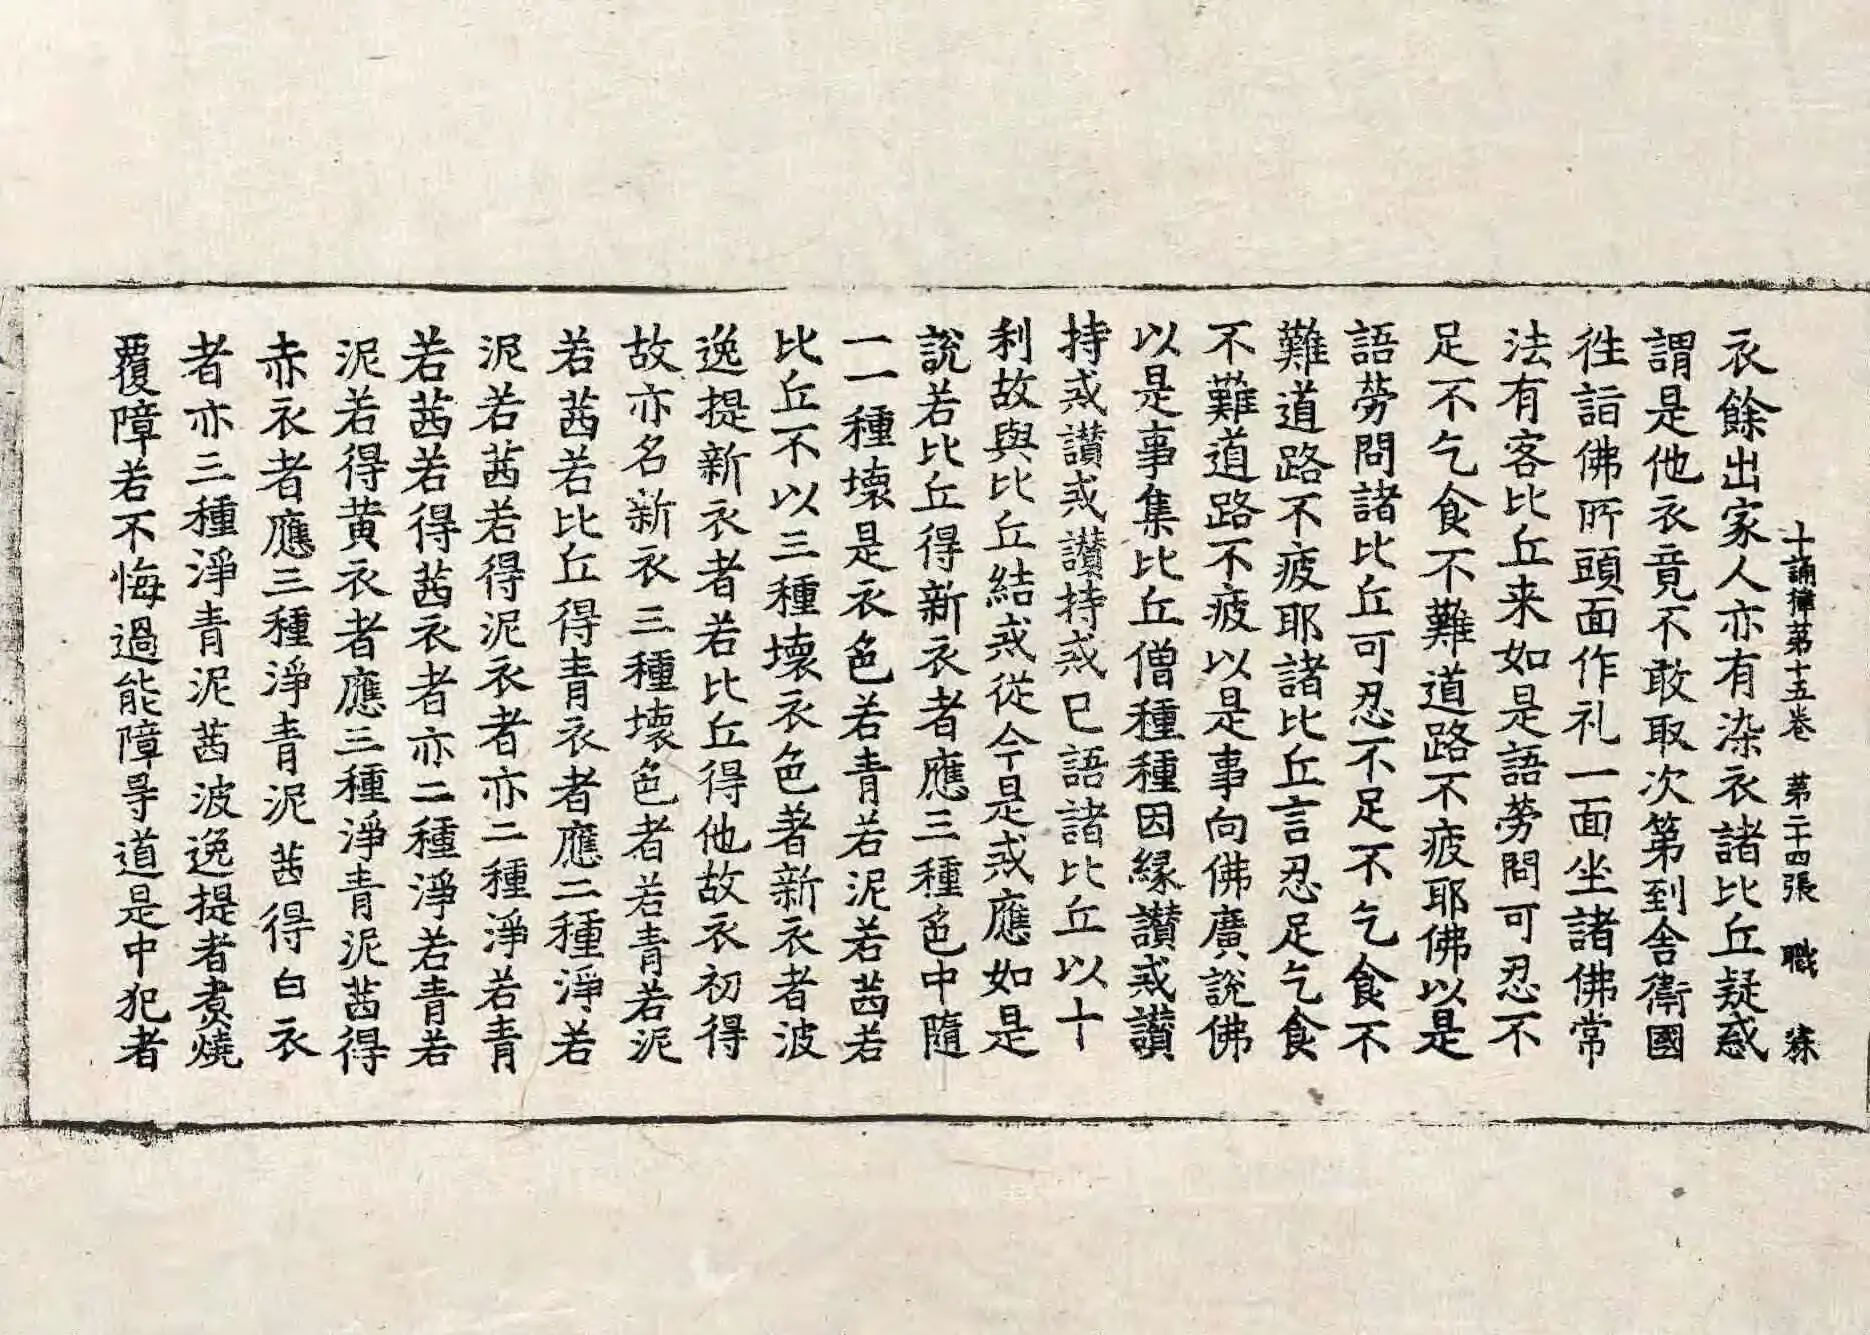 十誦律第十五卷 第二十四張 職 寀
衣餘出家人亦有染衣諸比丘疑惑
謂是他衣竟不敢取次第到舍衛國
徃詣佛所頭面作礼一面坐諸佛常
法有客比丘来如是語勞問可忍不
足不乞食不難道路不疲耶佛以是
語勞問諸比丘可忍不足不乞食不
難道路不疲耶諸比丘言忍足乞食
不難道路不疲以是事向佛廣說佛
以是事集比丘僧種種因緣讃戒讃
持戒讃戒讃持戒已語諸比丘以十
利故與比丘結戒從今是戒應如是
說若比丘得新衣者應三種色中隨
一一種壞是衣色若青若泥若茜若
比丘不以三種壞衣色著新衣者波
逸提新衣者若比丘得他故衣初得
故亦名新衣三種壞色者若青若泥
若茜若比丘得青衣者應二種淨若
泥若茜若得泥衣者亦二種淨若青
若茜若得茜衣者亦二種淨若青若
泥若得黄衣者應三種淨青泥茜得
赤衣者應三種淨青泥茜得白衣
者亦三種淨青泥茜波逸提者煑燒
覆障若不悔過能障㝵道是中犯者